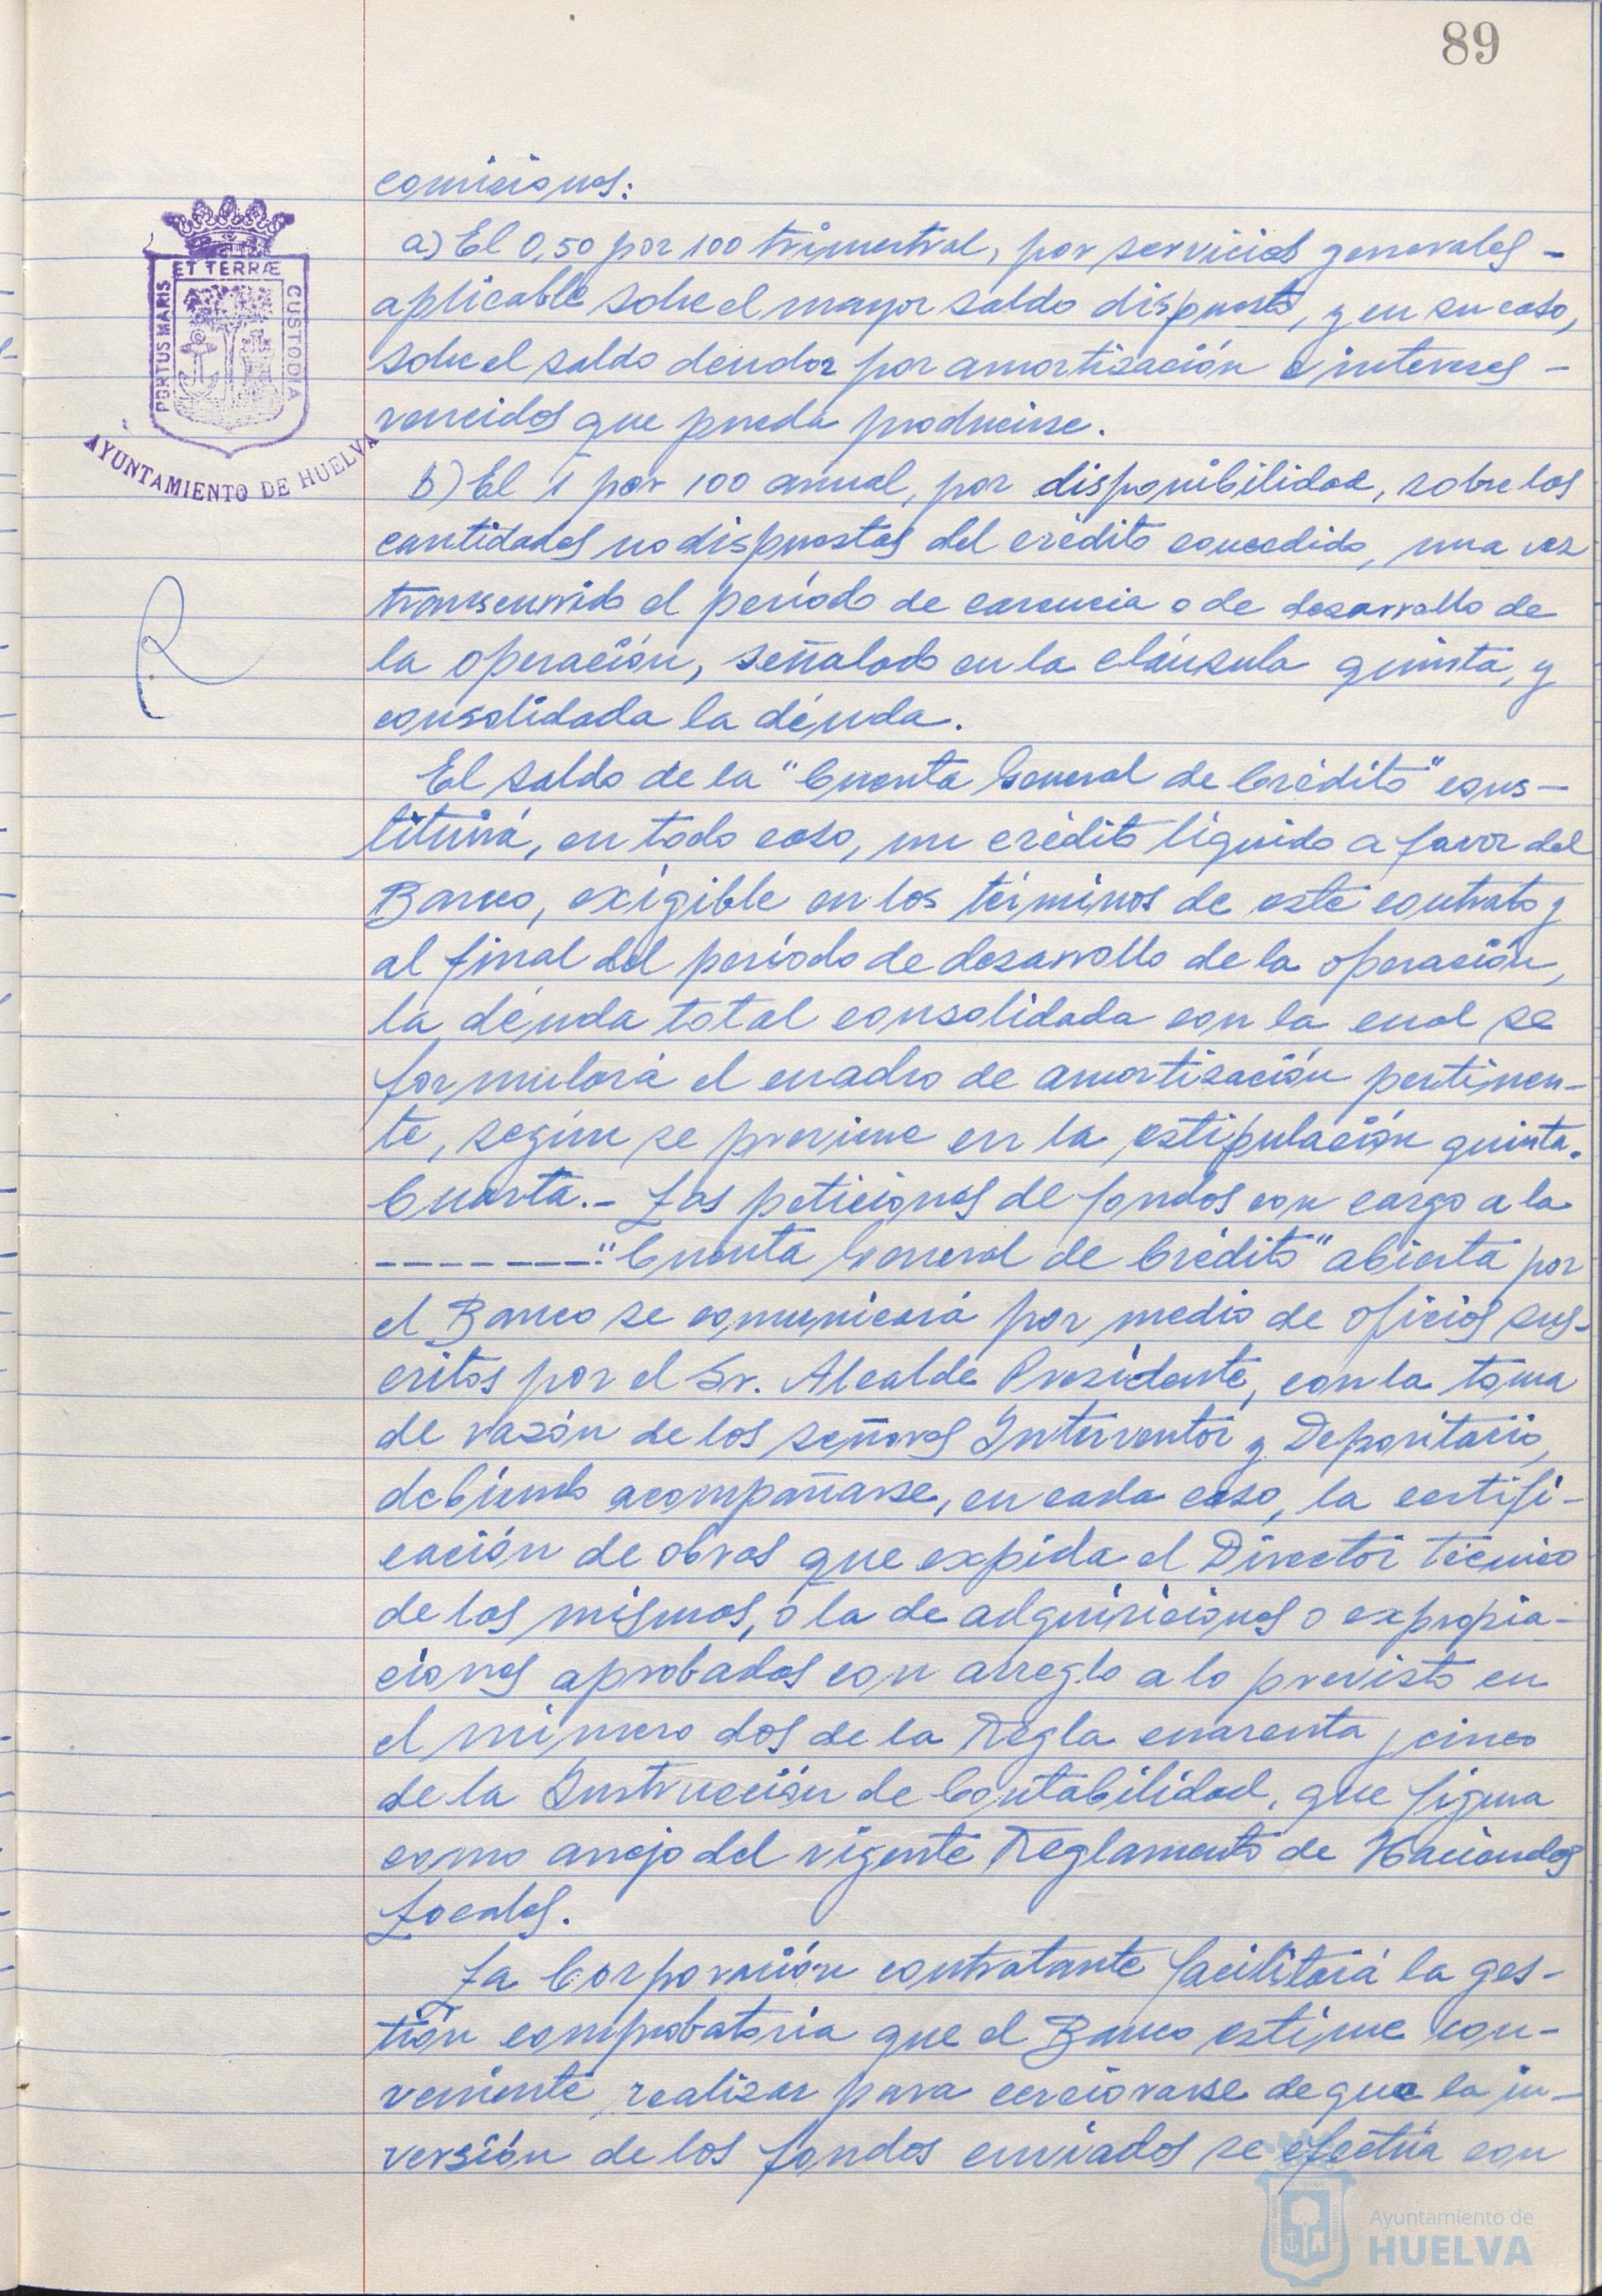 89
comisiones:
a) El 0,50 por 100 trimestral, por servicios generales -
aplicable sobre el mayor saldo dispuesto, y en su caso,
sobre el saldo deudor por amortización e intereses -
vencidos que pueda producirse.
b) El 1 por 100 anual, por disponibilidad, sobre las
cantidades no dispuestas del crédito concedido, una vez
transcurrido el período de carencia o de desarrollo de
la operación, señalado en la cláusula quinta, y
consolidada la déuda.
El saldo de la "Cuenta General de Crédito" cons-
tituirá, en todo caso, un crédito líquido a favor del
Banco, exigible en los términos de este contrato y
al final del período de desarrollo de la operación,
la déuda total consolidada con la cual se
formulará el cuadro de amortización pertinen-
te, según se previene en la estipulación quinta.
Cuarta.- Las peticiones de fondos con cargo a la
-------:"Cuenta General de Crédito" abierta por
el Banco se comunicará por medio de oficios sus-
critos por el Sr. Alcalde Presidente, con la toma
de razón de los señores Interventor y Depositario,
debiendo acompañarse, en cada caso, la certifi-
cación de obras que expida el Director técnico
de las mismas, o la de adquisiciones o expropia-
ciones aprobadas con arreglo a lo previsto en
el número dos de la Regla cuarenta y cinco
de la Instrucción de Contabilidad, que figura
como anejo del vigente Reglamento de Haciendas
Locales.
La Corporación contratante facilitará la ges-
tión comprobatoria que el Banco estime con-
veniente realizar para cerciorarse de que la in-
versión de los fondos enviados se efectúa con
ET TERRÆ
PORTUS MARIS
CUSTODIA
AYUNTAMIENTO DE HUELVA
Ayuntamiento de
HUELVA